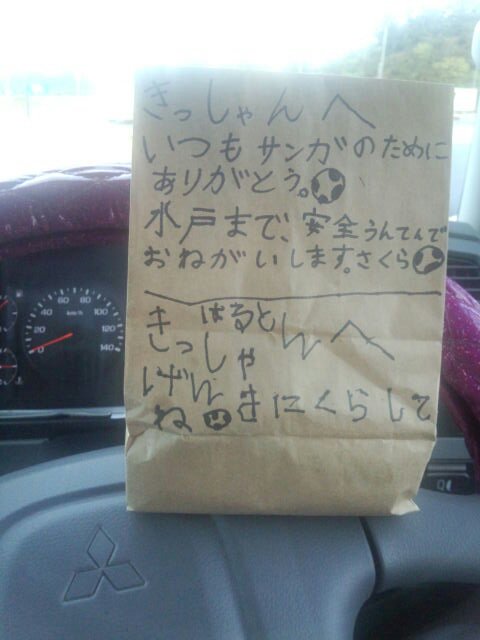 きっしゃんへ
いつもサンガのために
ありがとう。
水戸まで、安全うんてんで
おねがいします。さくら
はると
きっしゃんへ
げんきにくらして
ね
0 20 40 60 80 100 120 140
km/h